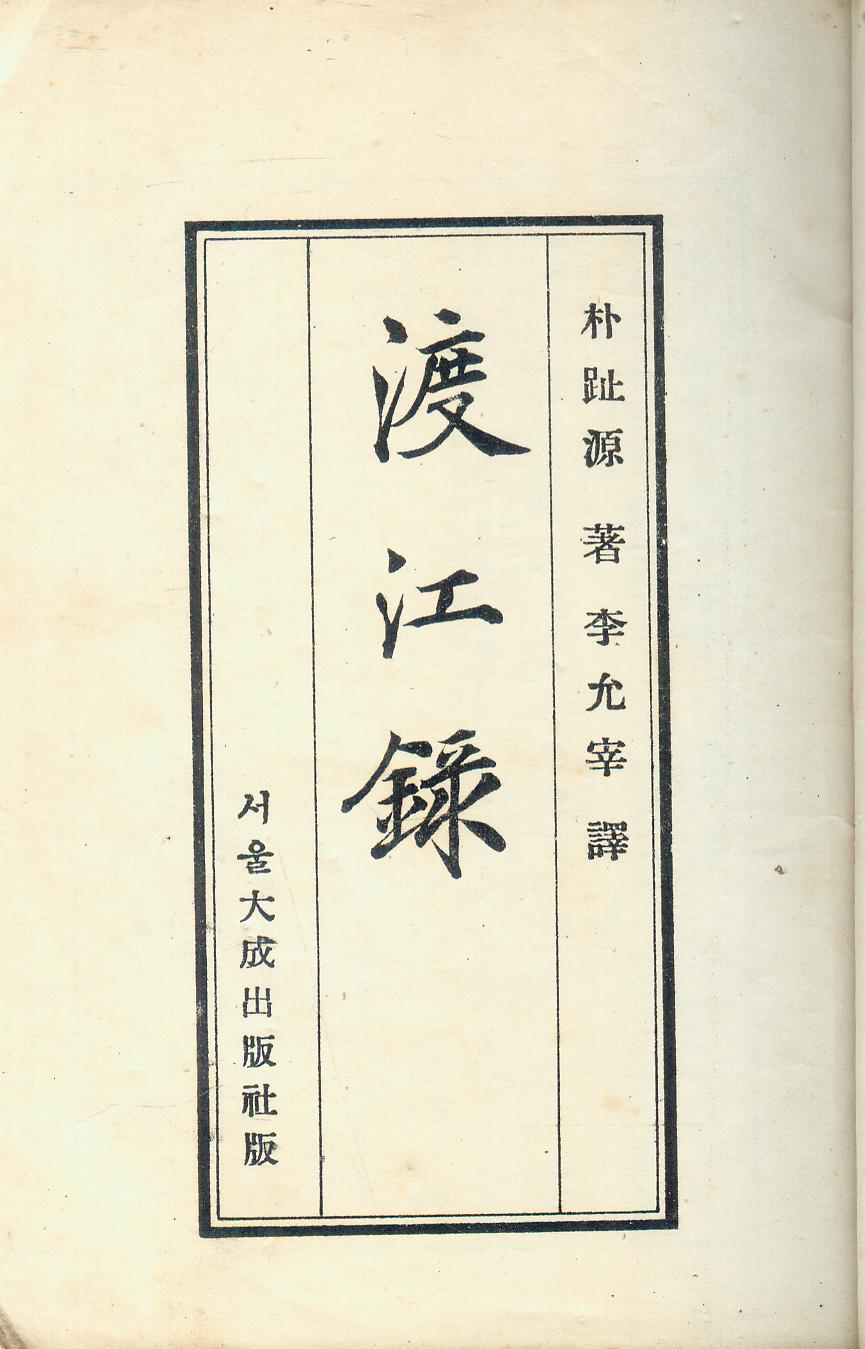 朴趾源 著 李允宰 譯
渡江錄
서울大成出版社版